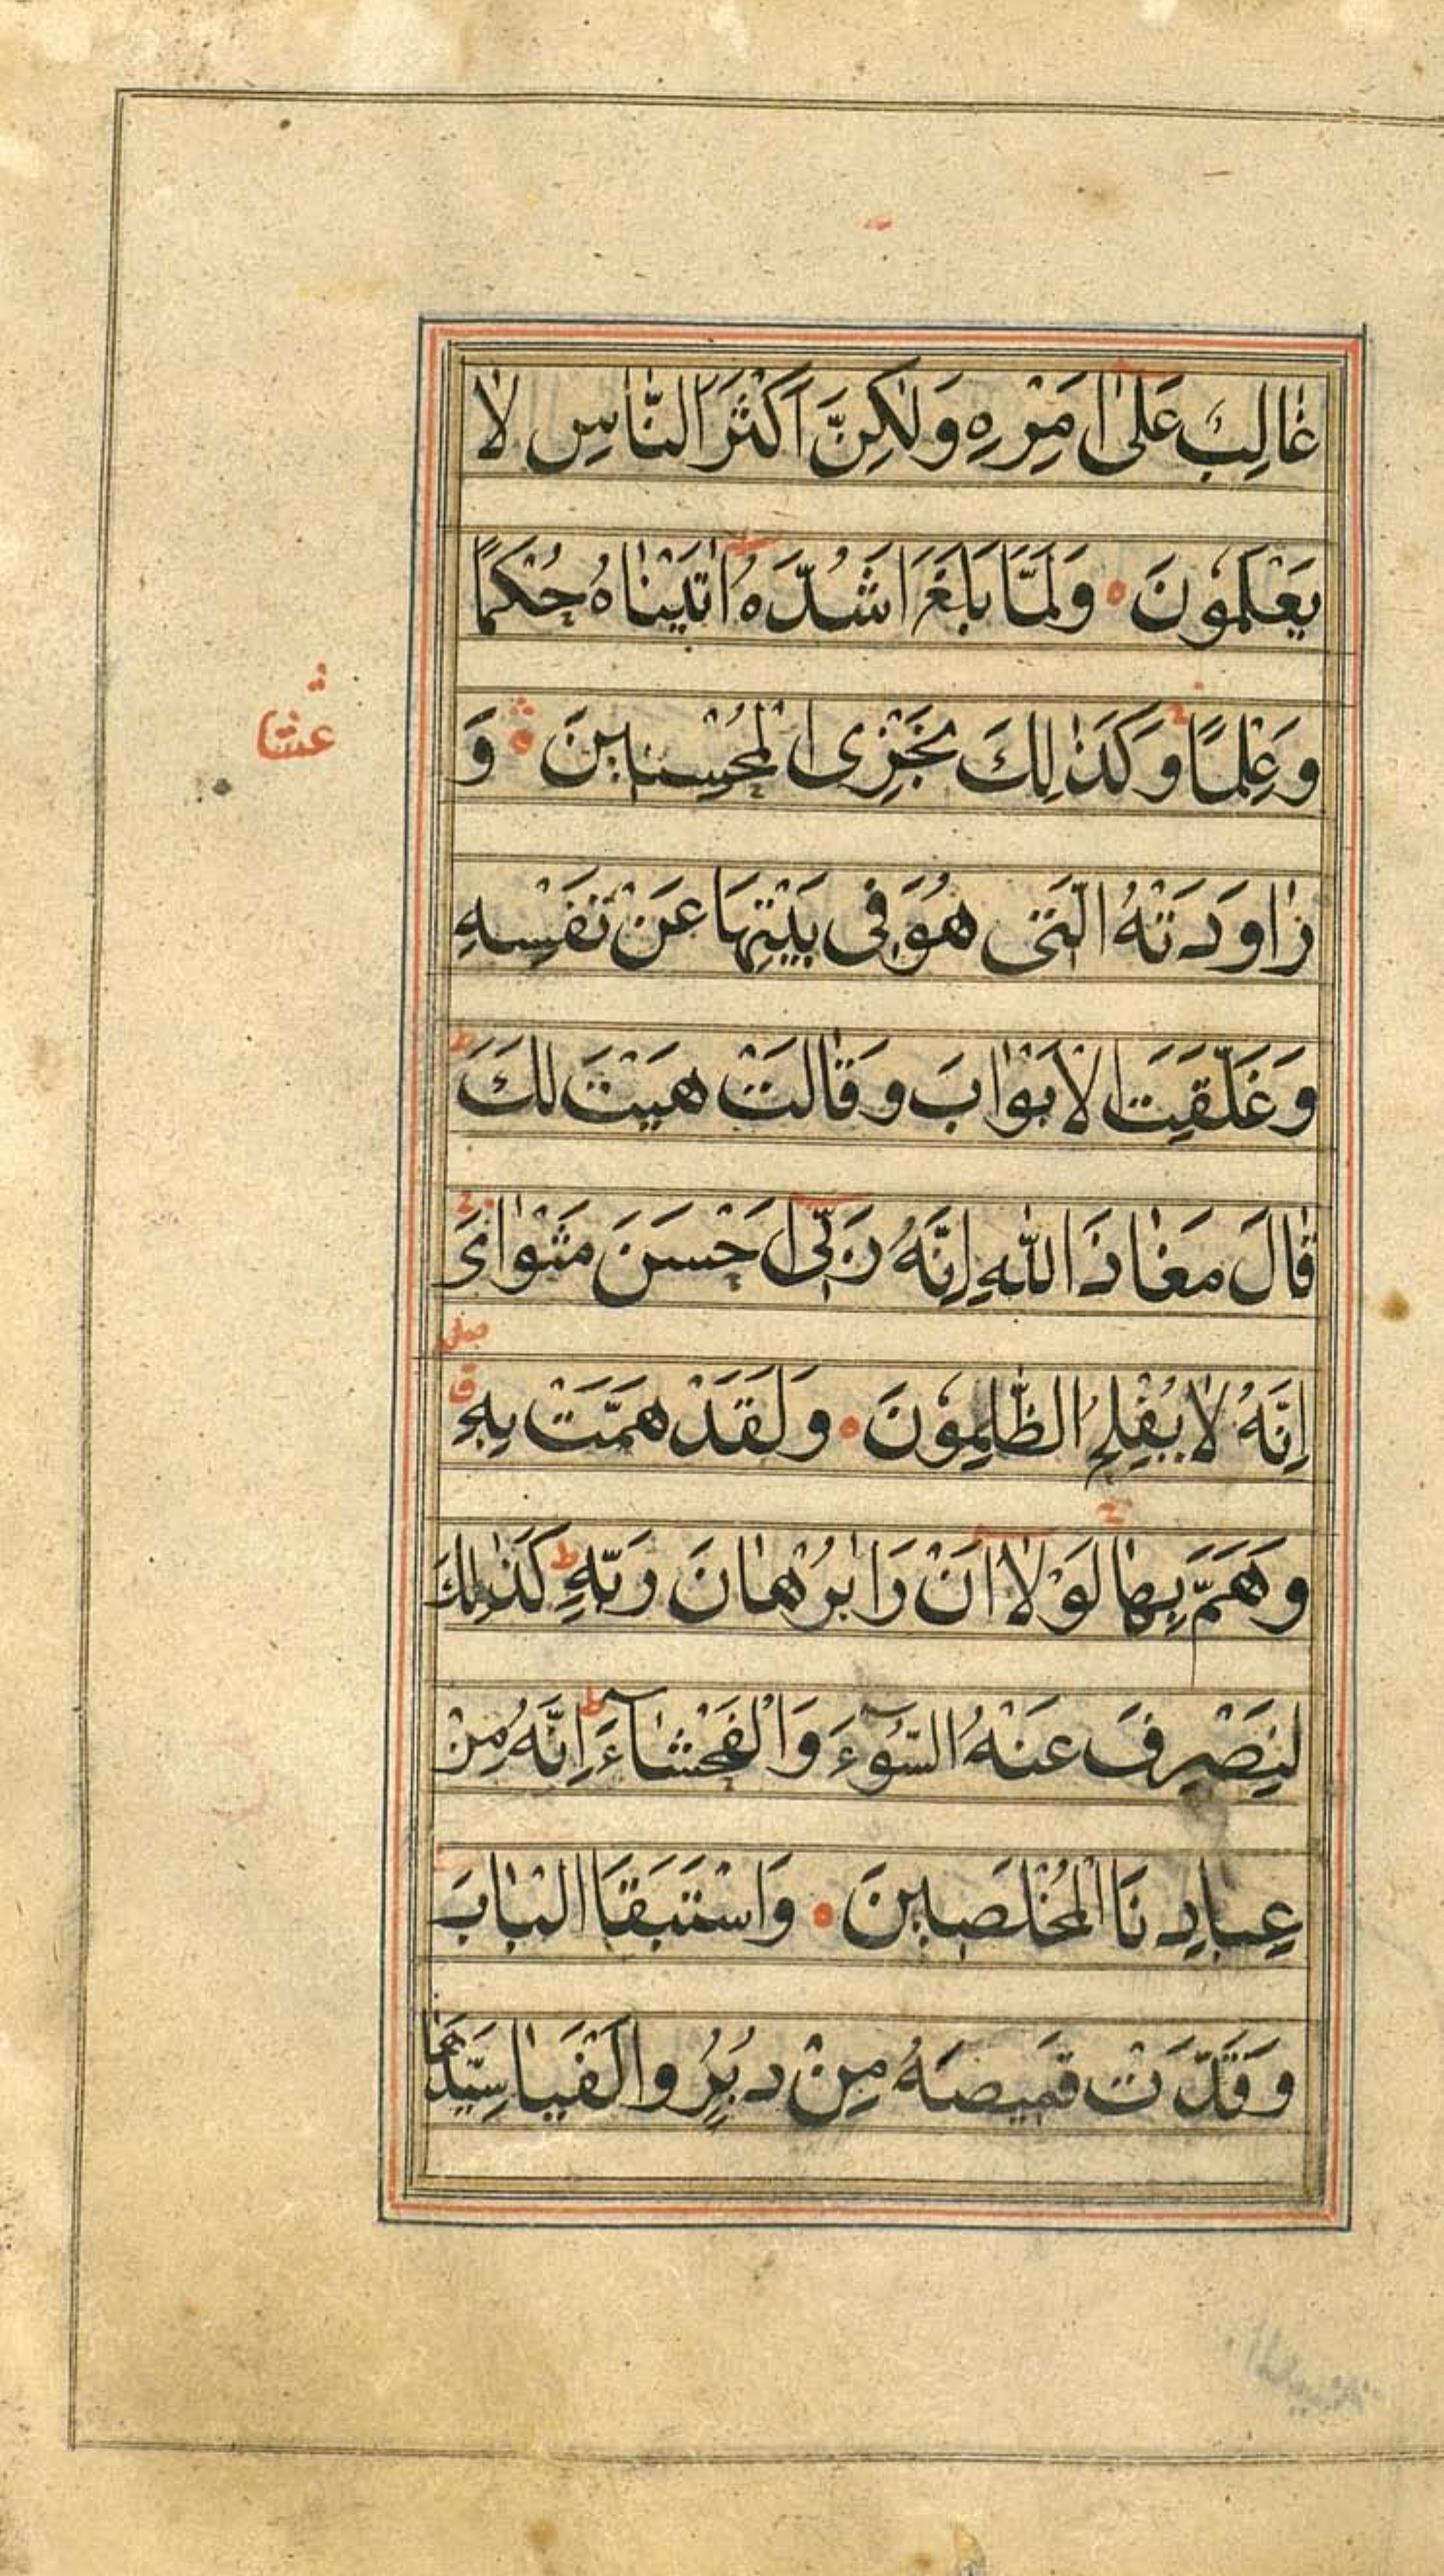 غٰالِبٌ عَلىٰ اَمْرِهِ وَلٰكِنَّ اَكْثَرَ النّٰاسِ لاٰ
يَعْلَمُونَ ۰ وَلَمّٰا بَلَغَ اَشُدَّهُ اٰتَيْنٰاهُ حُكْمًا
وَعِلْمًا وَكَذٰلِكَ نَجْزِى الْمُحْسِنينَ ۰ وَ
عشٰا
رٰاوَدَتْهُ الَّتى هُوَ فى بَيْتِهٰا عَنْ نَفْسِهِ
وَغَلَّقَتِ الْاَبْوٰابَ وَقٰالَتْ هَيْتَ لَكَ ط
قٰالَ مَعٰاذَ اللّٰهِ اِنَّهُ رَبّى اَحْسَنَ مَثْوٰاىَ
صلى
اِنَّهُ لاٰ يُفْلِحُ الظّٰلِمُونَ ۰ وَلَقَدْ هَمَّتْ بِهِ ق
وَهَمَّ بِهٰا لَوْلاٰ اَنْ رَاٰ بُرْهٰانَ رَبِّهِ ط كَذٰلِكَ
لِنَصْرِفَ عَنْهُ السُّوٓءَ وَالْفَحْشٰآءَ ط اِنَّهُ مِنْ
عِبٰادِنَا الْمُخْلَصينَ ۰ وَاسْتَبَقَا الْبٰابَ
وَقَدَّتْ قَميصَهُ مِنْ دُبُرٍ وَاَلْفَيٰا سَيِّدَهٰا